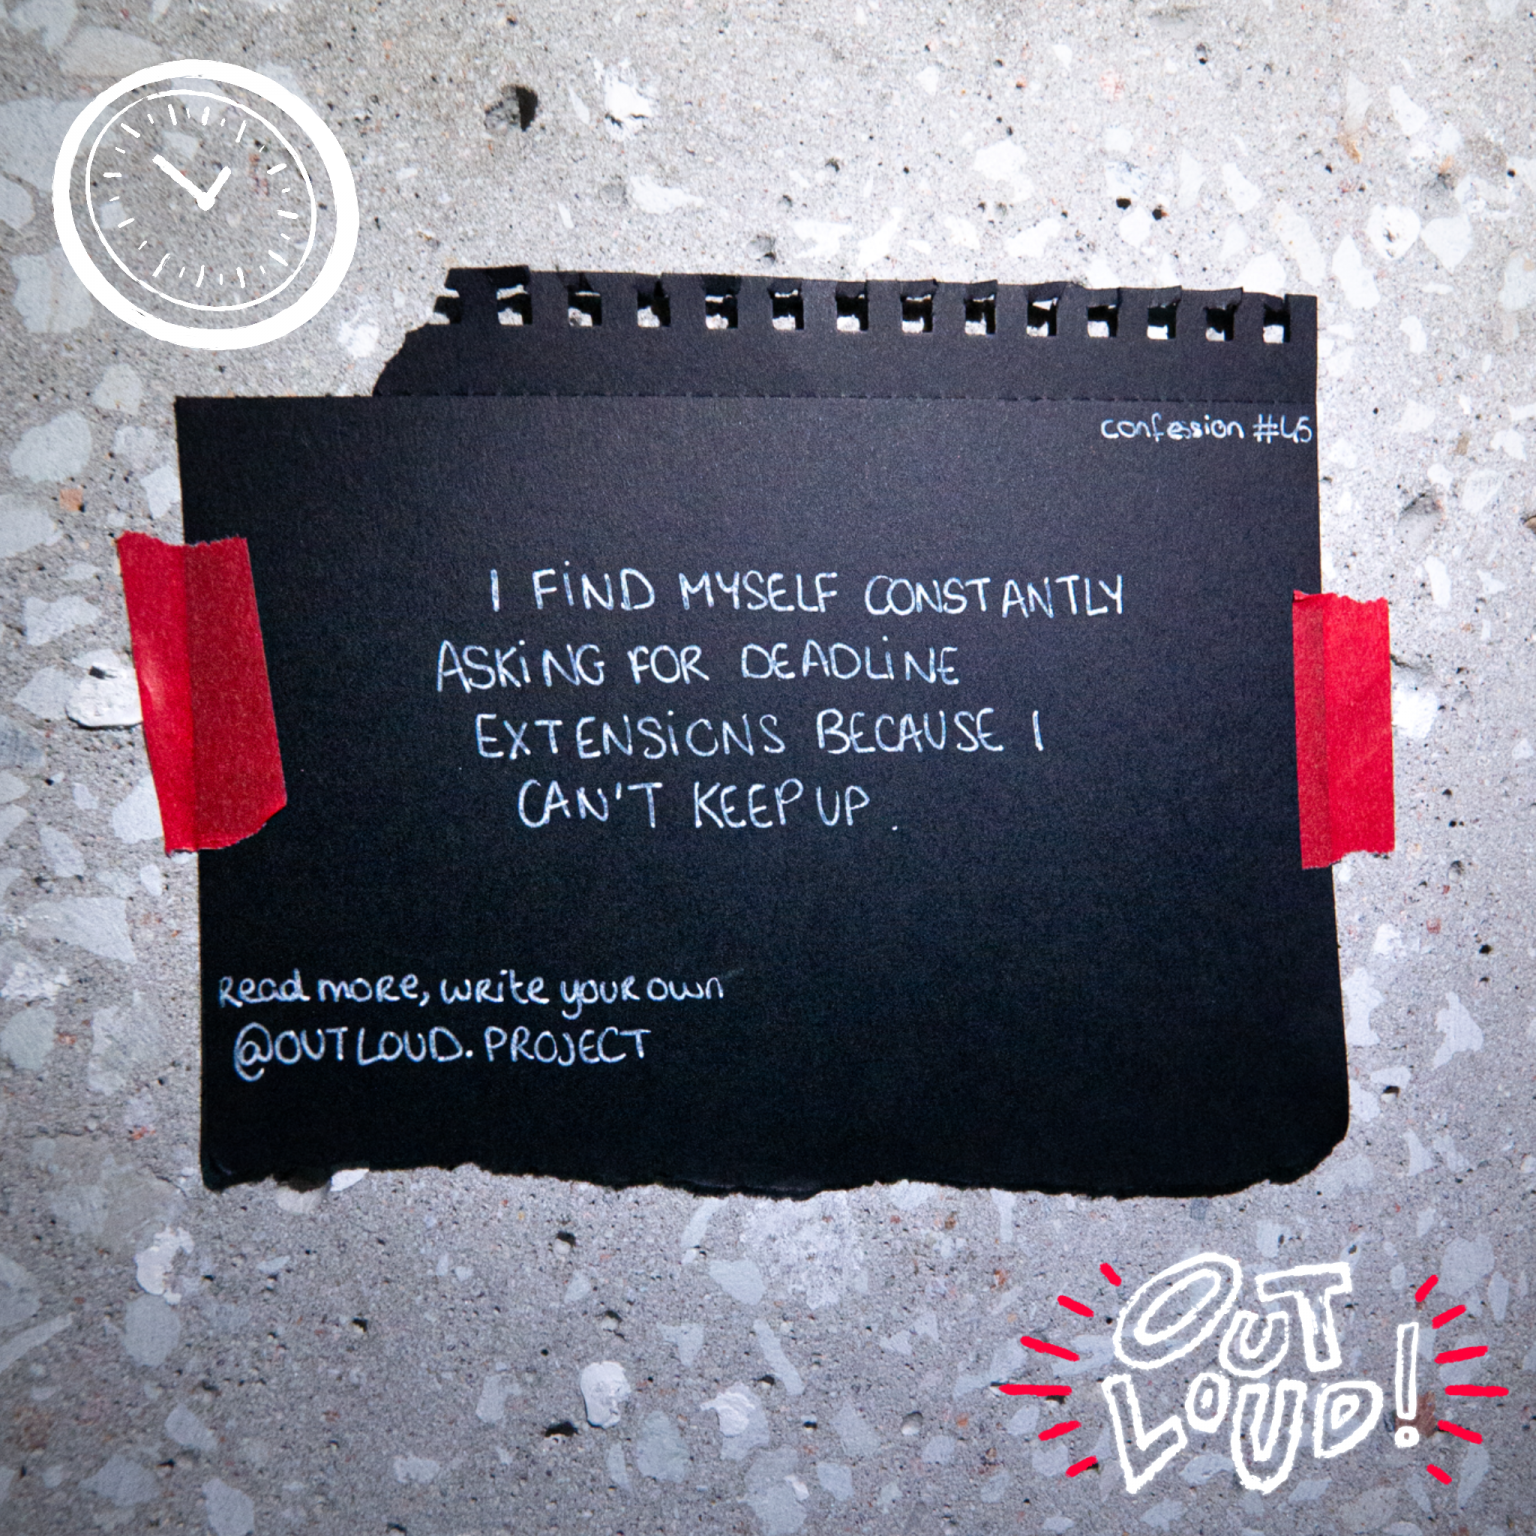 confession #45
I FIND MYSELF CONSTANTLY
ASKING FOR DEADLINE
EXTENSIONS BECAUSE I
CAN'T KEEP UP.
Read more, write your own
@OUTLOUD.PROJECT
OUT
LOUD!